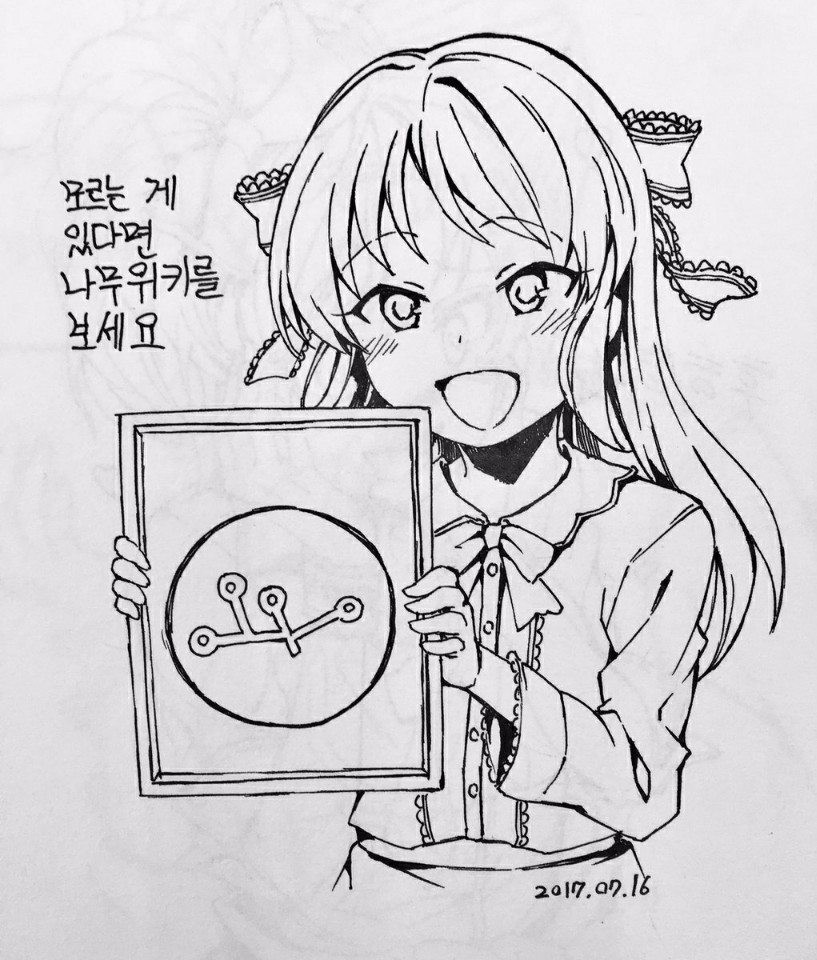 모르는 게
있다면
나무위키를
보세요
2017.07.16